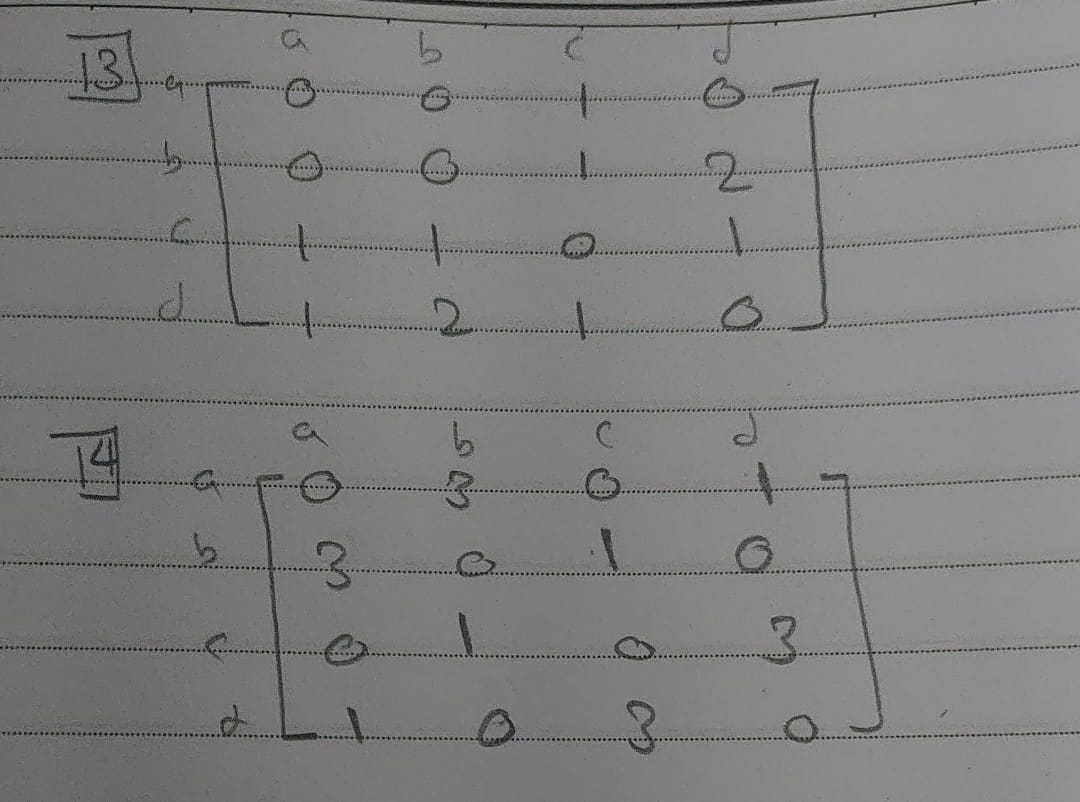 13
a b c d
a 0 0 1 0
b 0 0 1 2
c 1 1 0 1
d 1 2 1 0
14
a b c d
a 0 3 0 1
b 3 0 1 0
c 0 1 0 3
d 1 0 3 0